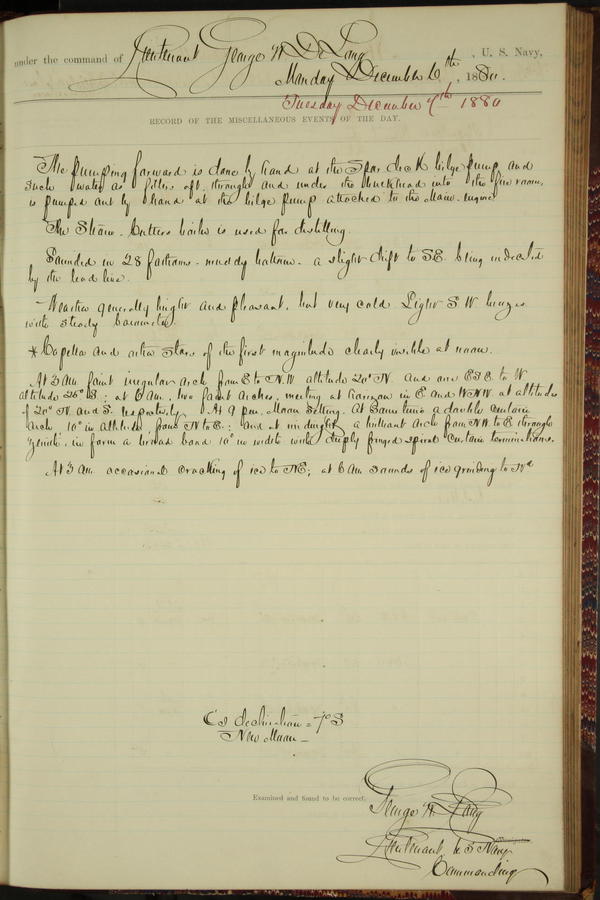 under the command of Lieutenant George W. De Long, U. S. Navy,
Monday December 6th, 1880.
Tuesday December 7th 1880
RECORD OF THE MISCELLANEOUS EVENTS OF THE DAY.
The pumping forward is done by hand at the Spar deck bilge pump and
such water as filters aft through and under the bulkhead into the fire room,
is pumped out by hand at the bilge pump attached to the Main engine
The Steam Cutters boiler is used for distilling.
Sounded in 28 fathoms - muddy bottom - a slight drift to SE. being indicated
by the lead line.
Weather generally bright and pleasant, but very cold Light S W breezes
with steady barometer.
* Capella and other stars of the first magnitude clearly visible at noon.
At 3 AM faint irregular arch from E to N.W altitude 20° N. and one ESE to W
altitude 25° S.; at 6 AM, two faint arches, meeting at horizon in E and WNW at altitudes
of 20° N and S. respectively. At 9 pm. Moon setting. At same time a double curtain
arch 10° in altitude, from N to E.; and at midnight a brilliant arch from N.W. to E through
Zenith, in form a broad band 10° in width with deeply fringed spiral curtain terminations.
At 3 AM occasional cracking of ice to NE; at 6 AM sounds of ice grinding to Nd
C's declination = 7° S
New Moon -
Examined and found to be correct.
George W. De Long
Lieutenant U S Navy
Commanding